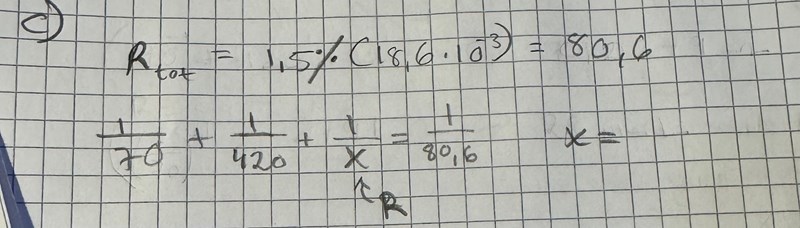 c)
R_tot = 1,5%(18,6·10^-3) = 80,6
1/70 + 1/420 + 1/x = 1/80,6 x =
↑R